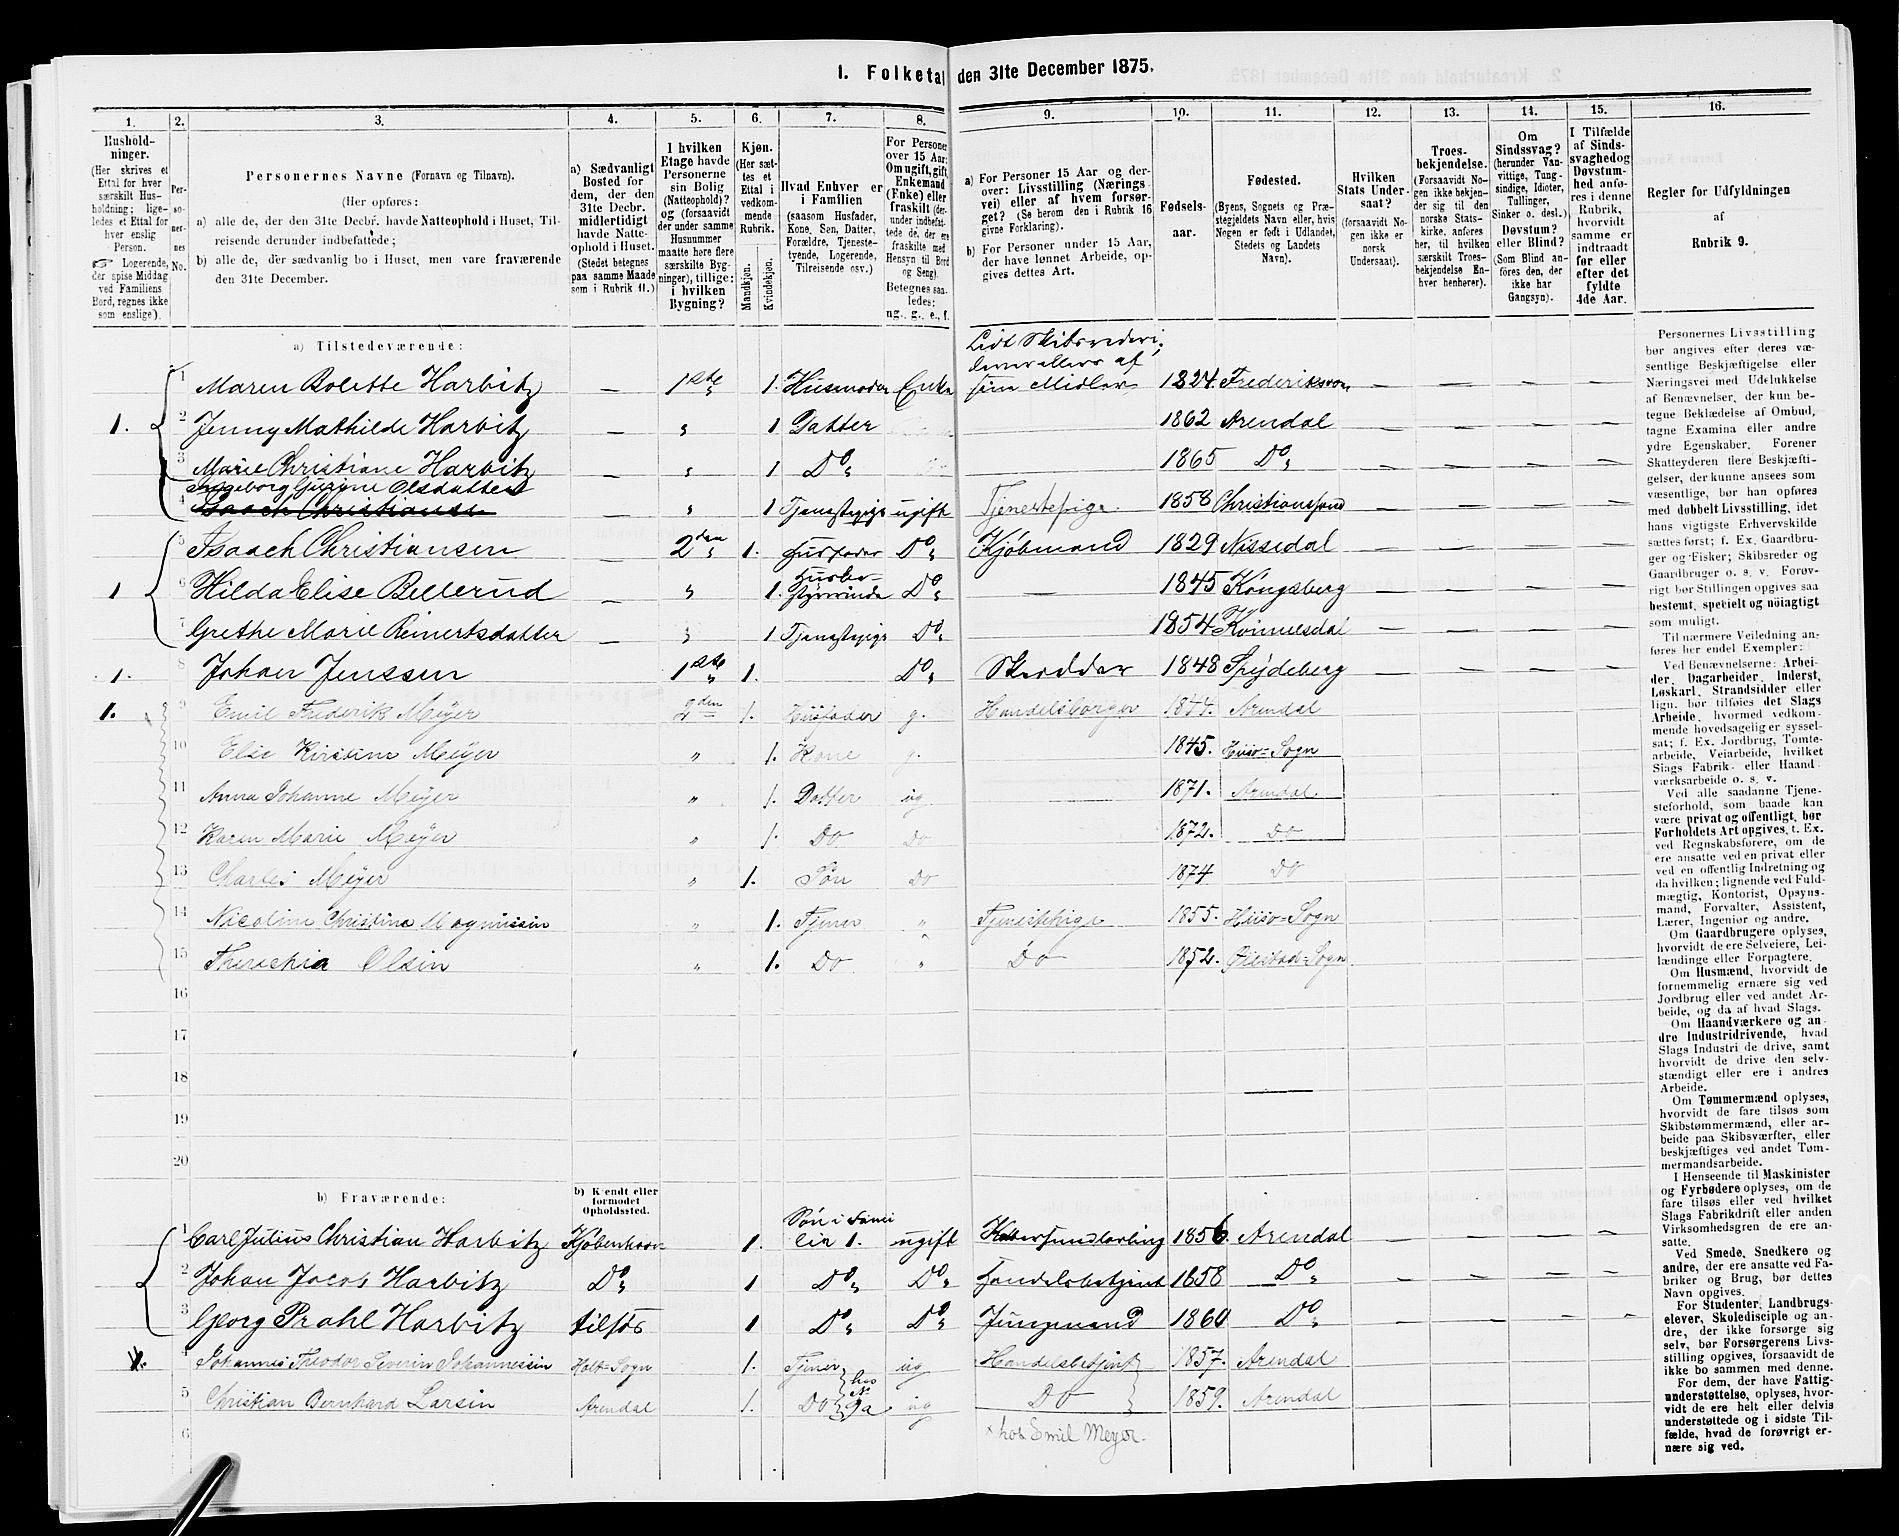 1. Folketal den 31te December 1875.
1. 2. 3. 4. 5. 6. 7. 8. 9. 10. 11. 12. 13. 14. 15. 16.
Hushold-
ninger.
(Her skrives et
Ettal for hver
særskilt Hus-
holdning; lige-
ledes et Ettal for
hver enslig
Person.
☞ Logerende,
der spise Middag
ved Familiens
Bord, regnes ikke
som enslige).
Per-
so-
ner-
nes
No.
Personernes Navne (Fornavn og Tilnavn).
(Her opføres:
a) alle de, der den 31te Decbr. havde Natteophold i Huset, Til-
reisende derunder indbefattede;
b) alle de, der sædvanlig bo i Huset, men vare fraværende
den 31te December.
a) Sædvanligt
Bosted for
dem, der den
31te Decbr.
midlertidigt
havde Natte-
ophold i Huset.
(Stedet betegnes
paa samme Maade
som i Rubrik 11.)
I hvilken
Etage havde
Personerne
sin Bolig
(Natteophold)?
og (forsaavidt
der under samme
Husnummer
maatte høre flere
særskilte Byg-
ninger), tillige:
i hvilken
Bygning?
Kjøn.
(Her sæt-
tes et
Ettal i
vedkom-
mende
Rubrik.
Mandkjøn.
Kvindekjøn.
Hvad Enhver er
i Familien
(saasom Husfader,
Kone, Søn, Datter,
Forældre, Tjeneste-
tyende, Logerende,
Tilreisende osv.)
For Personer
over 15 Aar:
Om ugift, gift,
Enkemand
(Enke) eller
fraskilt (der-
under indbefat-
tede de, der ere
fraskilte med
Hensyn til Bord
og Seng).
Betegnes saa-
ledes:
ug., g., e., f.
a) For Personer 15 Aar og der-
over: Livsstilling (Nærings-
vei) eller af hvem forsør-
get? (Se herom den i Rubrik 16
givne Forklaring).
b) For Personer under 15 Aar,
der have lønnet Arbeide, op-
gives dettes Art.
Fødsels-
aar.
Fødested.
(Byens, Sognets og Præ-
stegjeldets Navn eller, hvis
Nogen er født i Udlandet,
Stedets og Landets
Navn).
Hvilken
Stats Under-
saat?
(forsaavidt No-
gen ikke er
norsk
Undersaat).
Troes-
bekjendelse.
(Forsaavidt No-
gen ikke bekjen-
der sig til den
norske Stats-
kirke, anføres
her, til hvilken
særskilt Troes-
bekjendelse En-
hver henhører).
Om
Sindssvag?
(herunder Van-
vittige, Tung-
sindige, Idioter,
Tullinger,
Sinker o. desl.)
Døvstum?
eller Blind?
(Som Blind an-
føres den, der
ikke har
Gangsyn).
I Tilfælde
af Sinds-
svaghed og
Døvstum-
hed anfø-
res i denne
Rubrik,
hvorvidt
samme er
indtraadt
før eller
efter det
fyldte
4de Aar.
Regler for Udfyldningen
af
Rubrik 9.
a) Tilstedeværende:
1. 1 Maren Bolette Harbitz — 1ste 1. Husmoder Enke Lidt Skibsrederi, af sine Midler 1824. — — — —
2 Jenny Mathilde Harbitz — " 1 Datter 1862 Arendal — — — —
3 Marie Christiane Harbitz — " 1 Do 1865 Do — — — —
Ingeborg Olsdatter
4 Isaach Christiansen — " 1 Tjenestepige ugift Tjenestepige 1858 Christianssand — — — —
1 5 Isaach Christiansen 2den 1. Husfader Do Kjøbmand 1829 Nissedal — — — —
6 Hilda Elise Bellerud — " 1. Husbestyrerinde Do — 1845 Kongsberg — — — —
7 Grethe Marie Reinertsdatter — " 1 Tjenestepige Do 1854 — — — —
1. 8 Johan Jenssen 1ste 1. Do Skrædder 1848 Spydeberg — — — —
1. 9 Emil Frederik Meyer 2den 1. Husfader g. Handelsborger 1844. Arendal
10 Elise Kirstine Meyer " 1. Kone g. 1845. Hisø-Sogn
11 Anna Johanne Meyer " 1. Datter ug 1871. Arendal
12 Karen Marie Meyer " 1. Do Do 1872. Do
13 Charles Meyer " 1. Søn Do 1874 Do
14 Nicoline Christine Magnussen " 1. Tjener " Tjenestepige 1855. Hisø-Sogn
15 Olsen " 1. Do " Do 1852. Øiestad-Sogn
16
17
18
19
20
b) Fraværende:
b) Kjendt eller
formodet
Opholdssted.
1 Carl Julius Christian Harbitz Kjøbenhavn 1. Søn i Familie 1. ugift 1856. Arendal — — — —
2 Johan Jacob Harbitz Do 1 Do Do Handelsbetjent 1858 Do — — — —
3 Georg Prahl Harbitz tilsøs 1 Do Do Jungmand 1860 Do — — — —
1. 4 Johannes Theodor Severin Johannessen Holt-Sogn 1. Tjener ug Handelsbetjent 1857. Arendal
5 Christian Bernhard Larsen Arendal 1. Do hos No 9a ug Do 1859. Arendal
6 × hos Emil Meyer.
Personernes Livsstilling
bør angives efter deres væ-
sentlige Beskjæftigelse eller
Næringsvei med Udelukkelse
af Benævnelser, der kun be-
tegne Beklædelse af Ombud,
tagne Examina eller andre
ydre Egenskaber. Forener
Skatteyderen flere Beskjæfti-
gelser, der kunne ansees som
væsentlige, bør han opføres
med dobbelt Livsstilling, idet
hans vigtigste Erhvervskilde
sættes først; f. Ex. Gaardbru-
ger og Fisker; Skibsreder og
Gaardbruger o. s. v. Forøv-
rigt bør Stillingen opgives saa
bestemt, specielt og nøiagtigt
som muligt.
Til nærmere Veiledning an-
føres her endel Exempler:
Ved Benævnelserne: Arbei-
der, Dagarbeider, Inderst,
Løskarl, Strandsidder eller
lign. bør tilføies det Slags
Arbeide, hvormed vedkom-
mende hovedsagelig er syssel-
sat; f. Ex. Jordbrug, Tomte-
arbeide, Veiarbeide, hvilket
Slags Fabrik- eller Haand-
værksarbeide o. s. v.
Ved alle saadanne Tjene-
steforhold, som baade kan
være privat og offentligt, bør
Forholdets Art opgives, t. Ex.
ved Regnskabsførere, om de
ere ansatte ved en privat eller
ved en offentlig Indretning og
da hvilken; lignende ved Fuld-
mægtig, Kontorist, Opsyns-
mand, Forvalter, Assistent,
Lærer, Ingeniør og andre.
Om Gaardbrugere oplyses,
hvorvidt de ere Selveiere, Lei-
lændinge eller Forpagtere.
Om Husmænd, hvorvidt de
fornemmelig ernære sig ved
Jordbrug eller ved andet Ar-
beide, og da af hvad Slags.
Om Haandværkere og an-
dre Industridrivende, hvad
Slags Industri de drive, samt
hvorvidt de drive den selv-
stændigt eller ere i andres
Arbeide.
Om Tømmermænd oplyses,
hvorvidt de fare tilsøs som
Skibstømmermænd, eller ar-
beide paa Skibsværfter, eller
beskjæftiges ved andet Tøm-
mermandsarbeide.
I Henseende til Maskinister
og Fyrbødere oplyses, om de
fare tilsøs eller ved hvilket
Slags Fabrikdrift eller anden
Virksomhedsgren de ere an-
satte.
Ved Smede, Snedkere og
andre, der ere ansatte ved Fa-
briker og Brug, bør dettes
Navn opgives.
For Studenter, Landbrugs-
elever, Skoledisciple og an-
dre, der ikke forsørge sig
selv, bør Forsørgerens Livs-
stilling opgives, forsaavidt de
ikke bo sammen med denne.
For dem, der have Fattig-
understøttelse, oplyses, hvor-
vidt de ere helt eller delvis
understøttede og i sidste Til-
fælde, hvad de forøvrigt er-
nære sig ved.